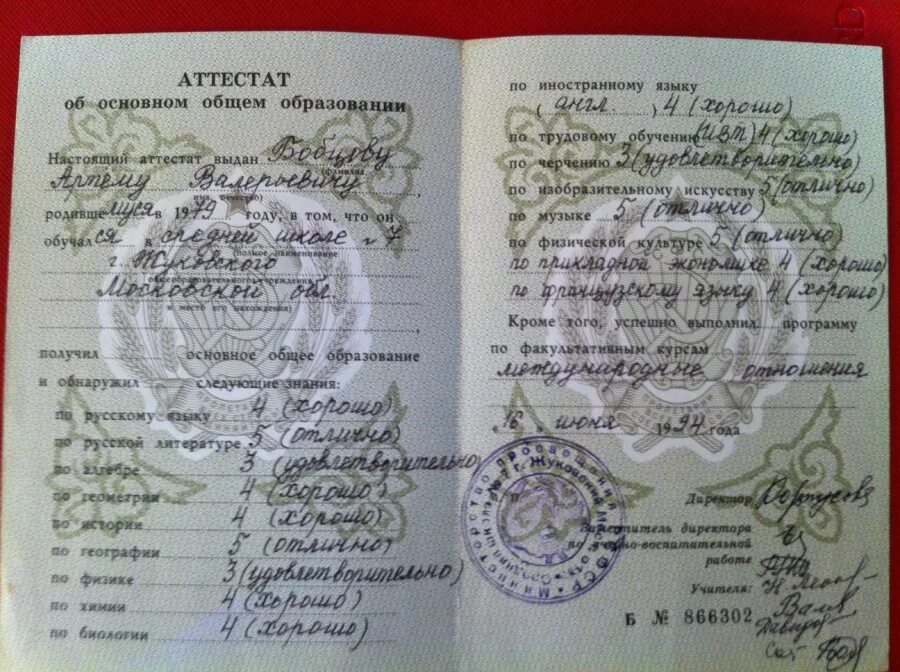 АТТЕСТАТ
об основном общем образовании
Настоящий аттестат выдан Бобцову
(фамилия
Артему Валерьевичу,
имя отчество)
родившемуся в 1979 году, в том, что он
обучался в средней школе г 7
(полное наименование
г. Жуковского
общеобразовательного учреждения
Московской обл.
и место его нахождения)
получил основное общее образование
и обнаружил следующие знания:
по русскому языку 4 (хорошо)
по русской литературе 5 (отлично)
по алгебре 3 (удовлетворительно)
по геометрии 4 (хорошо)
по истории 4 (хорошо)
по географии 5 (отлично)
по физике 3 (удовлетворительно)
по химии 4 (хорошо)
по биологии 4 (хорошо)
по иностранному языку
( англ. ) 4 (хорошо)
по трудовому обучению (ИВТ) 4 (хорошо)
по черчению 3 (удовлетворительно)
по изобразительному искусству 5 (отлично)
по музыке 5 (отлично)
по физической культуре 5 (отлично)
по прикладной экономике 4 (хорошо)
по французскому языку 4 (хорошо)
Кроме того, успешно выполнил программу
по факультативным курсам
международные отношения
« 16 » июня 1994 года
Министерство просвещения РСФСР
г. Жуковский
Директор
Заместитель директора
по учебно-воспитательной
работе
Учителя:
Б № 866302